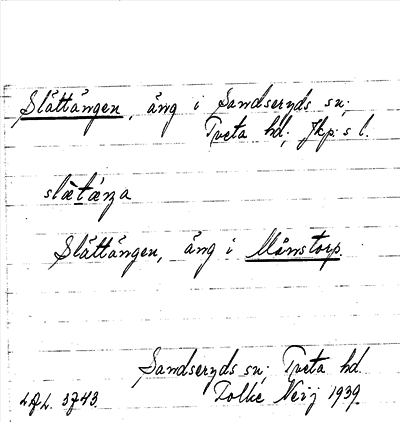 Slättängen, äng i Sandseryds sn;
Tveta hd; Jkp: s l.
slätäŋa
Slättängen, äng i Månstorp.
Sandseryds sn; Tveta hd.
Folke Neij 1939.
3743.